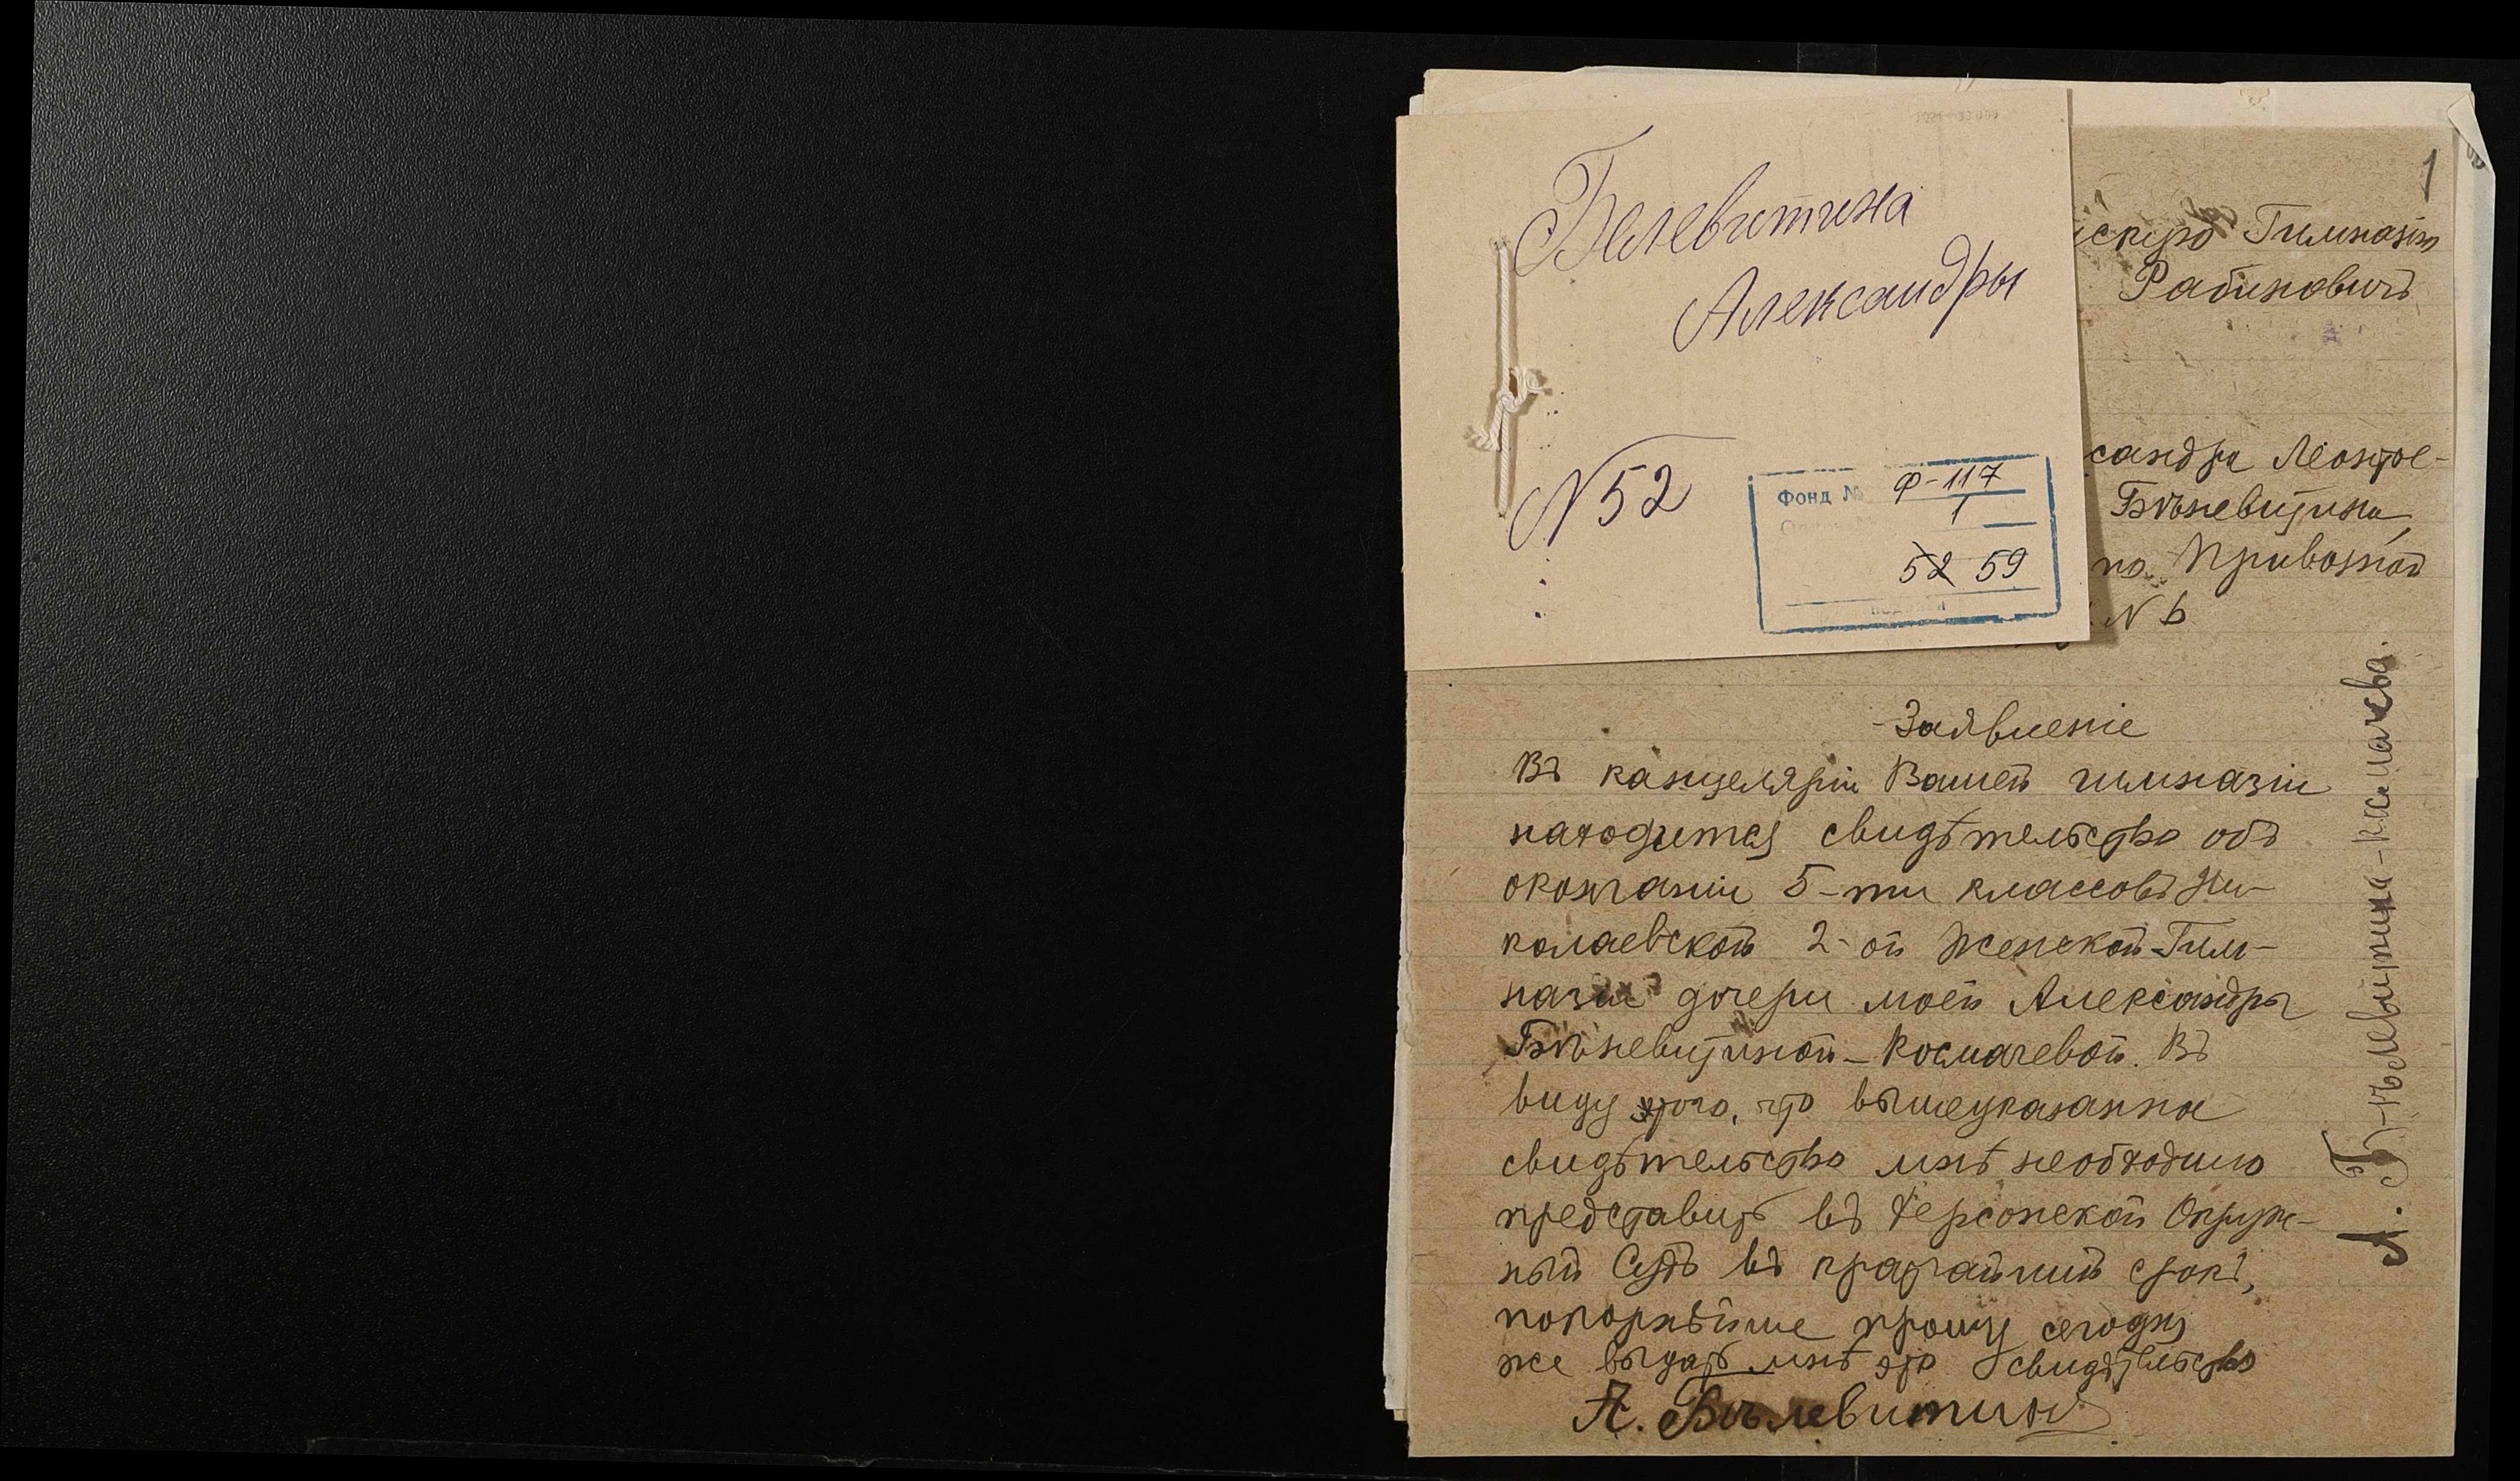 Белевитина
Александры
N 52
Фонд № Ф-117
1
52 59
1
Гимназіи
Рабиновичъ
сандра Леонтье-
Бѣлевитина,
по Привозной
N 6
Заявленіе
Въ канцеляріи Вашей гимназіи
находится свидѣтельство объ
окончаніи 5-ти классовъ Ни-
колаевской 2-ой Женской Гим-
назіи дочери моей Александры
Бѣлевитиной-Космачевой. Въ
виду того, что вышеуказанное
свидѣтельство мнѣ необходимо
представить въ Херсонской Окруж-
ный Судъ въ кратчайший срокъ,
покорнѣйше прошу сегодня
же выдать мнѣ это свидѣтельство
А. Бѣлевитин
А. Бѣлевитина-Касмачева.